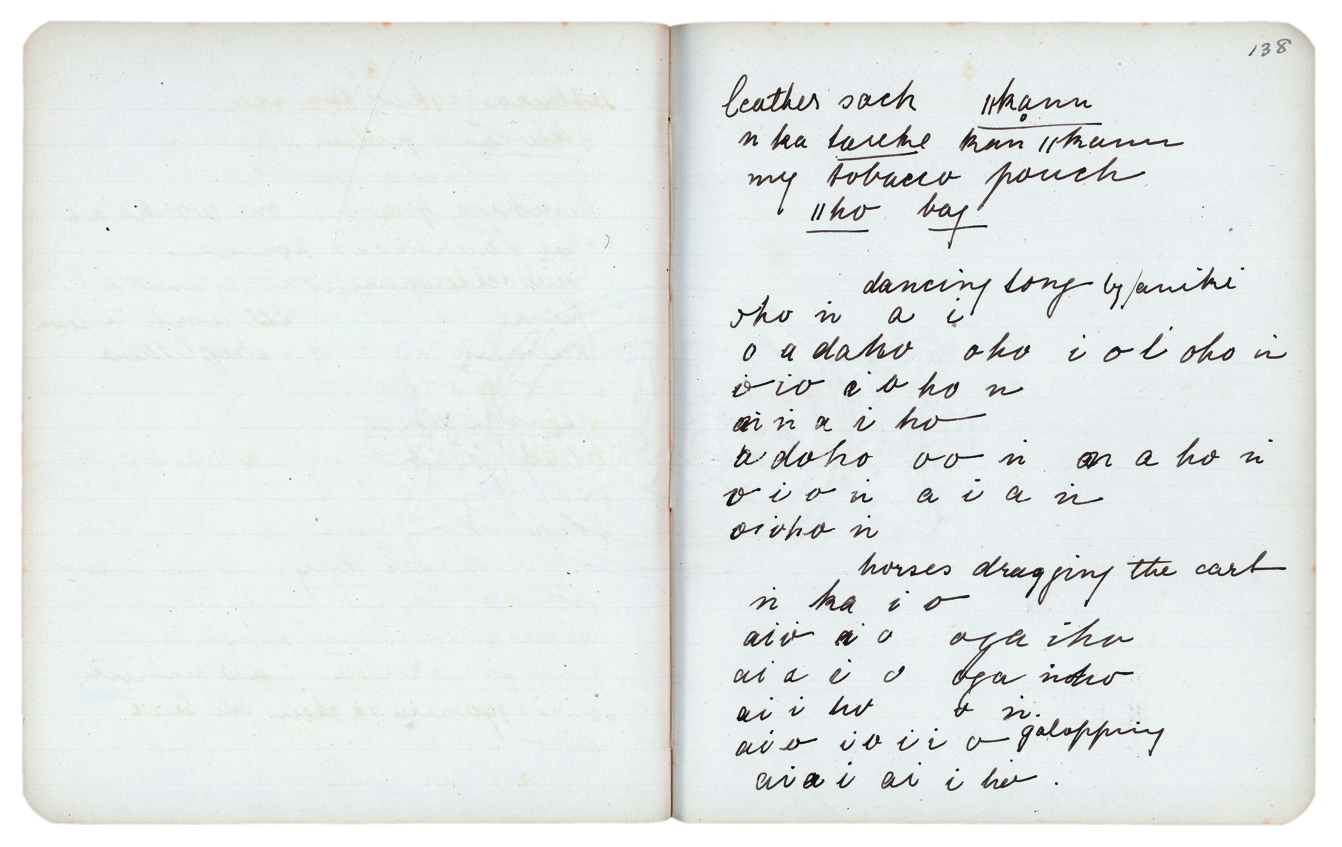 138
leather sack ǁkạnu
n ka taueke kan ǁkanu
my tobacco pouch
ǁho bag
dancing song by /aniki
oho n a i
o a daho oho i o i oho n
o io i o ho n
ai n a i ho
a doho o o n an a ho n
o i o n a i a n
oioho n
horses dragging the cart
n ka i o
aio a o oga iho
ai a i o oga noho
ai i ho o n.
aio i o i i o galopping
aia i ai i ho .